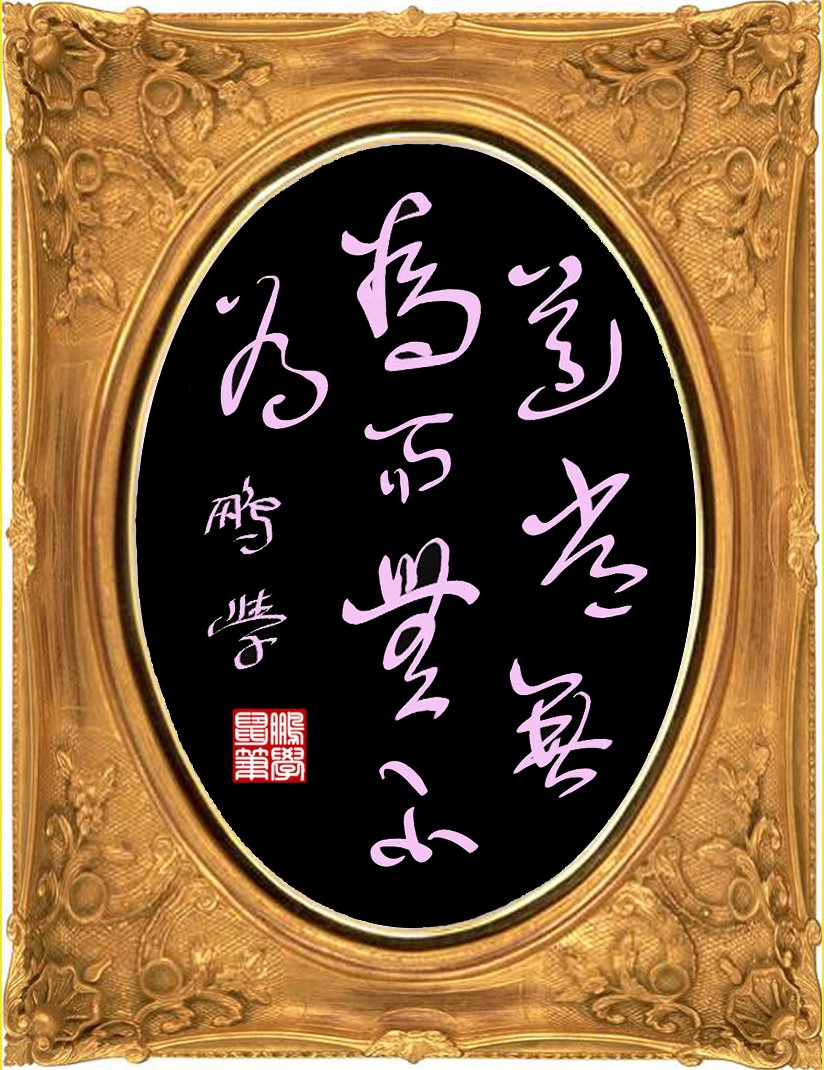 道常無
為而無不
為
鵬學
鵬學
鼠筆